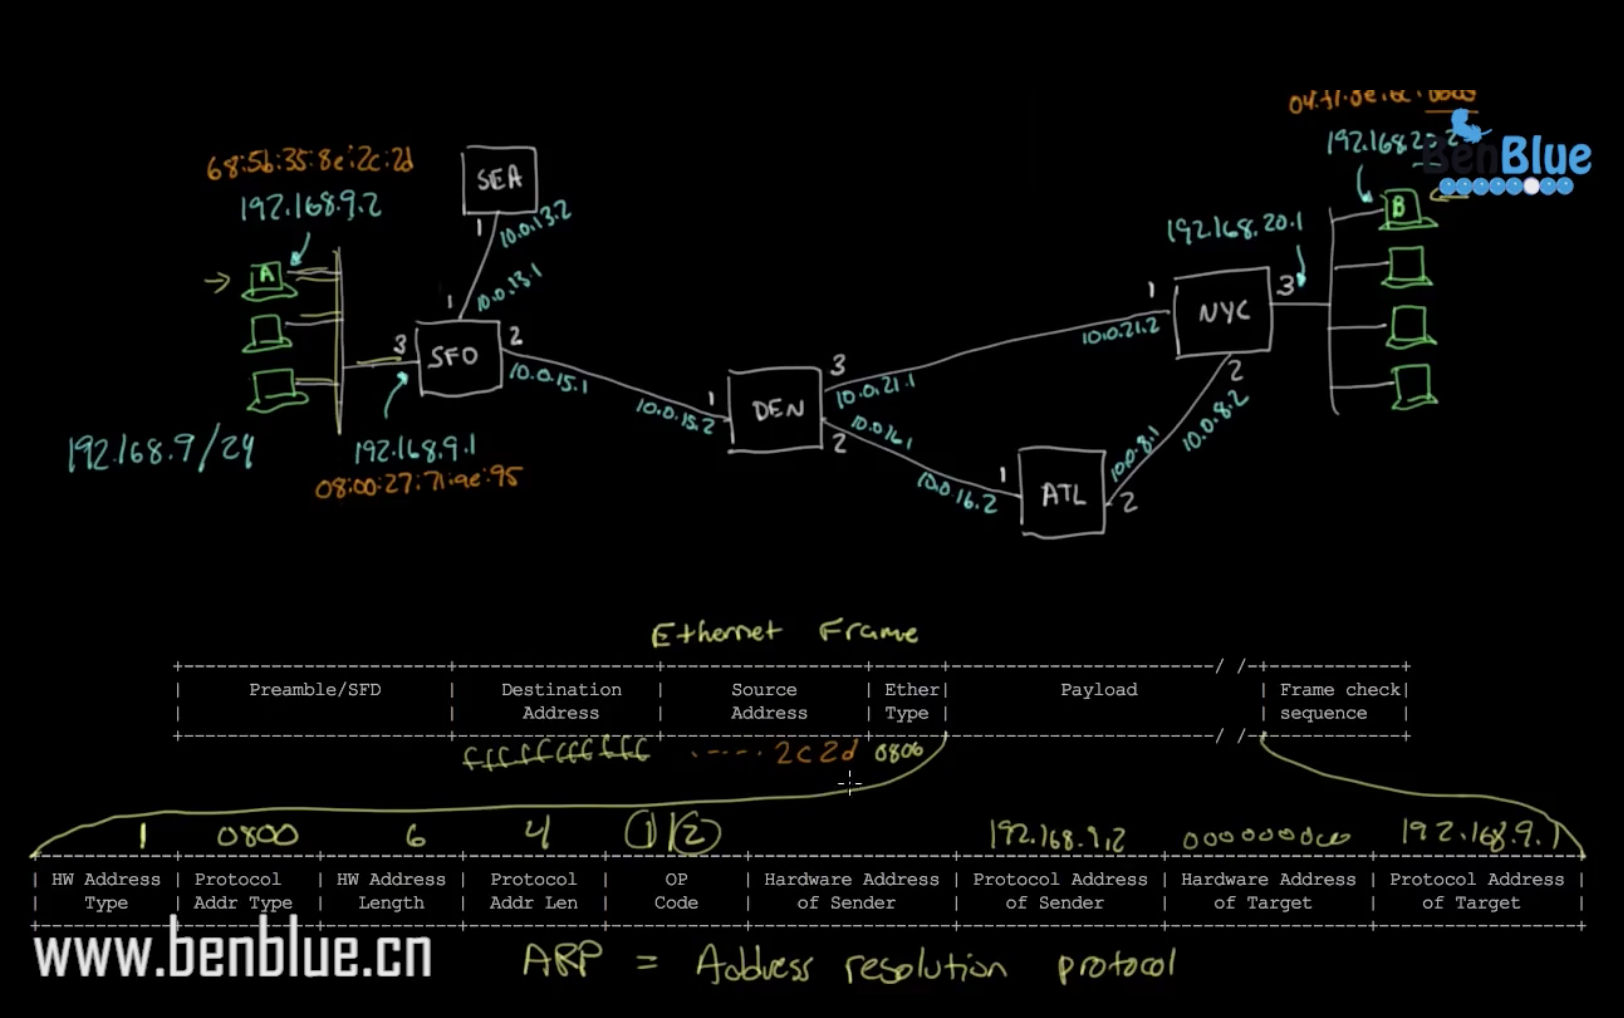 68:5b:35:8e:2c:2d
192.168.9.2
SEA
1
10.0.13.2
BenBlue
B
192.168.20.1
A
1
10.0.13.1
1
3
NYC
3
SFO
2
10.0.21.2
10.0.15.1
3
10.0.21.1
2
1
DEN
10.0.15.2
2
10.0.16.1
10.0.8.2
192.168.9/24
192.168.9.1
08:00:27:71:ae:95
10.0.8.1
1
10.0.16.2
ATL
2
Ethernet Frame
Preamble/SFD Destination Address Source Address Ether Type Payload Frame check sequence
ffffffffffff ..---. 2c2d 0806
1 0800 6 4 1 2 192.168.9.2 192.168.9.1
HW Address Type Protocol Addr Type HW Address Length Protocol Addr Len OP Code Hardware Address of Sender Protocol Address of Sender Hardware Address of Target Protocol Address of Target
www.benblue.cn
ARP = Address resolution protocol